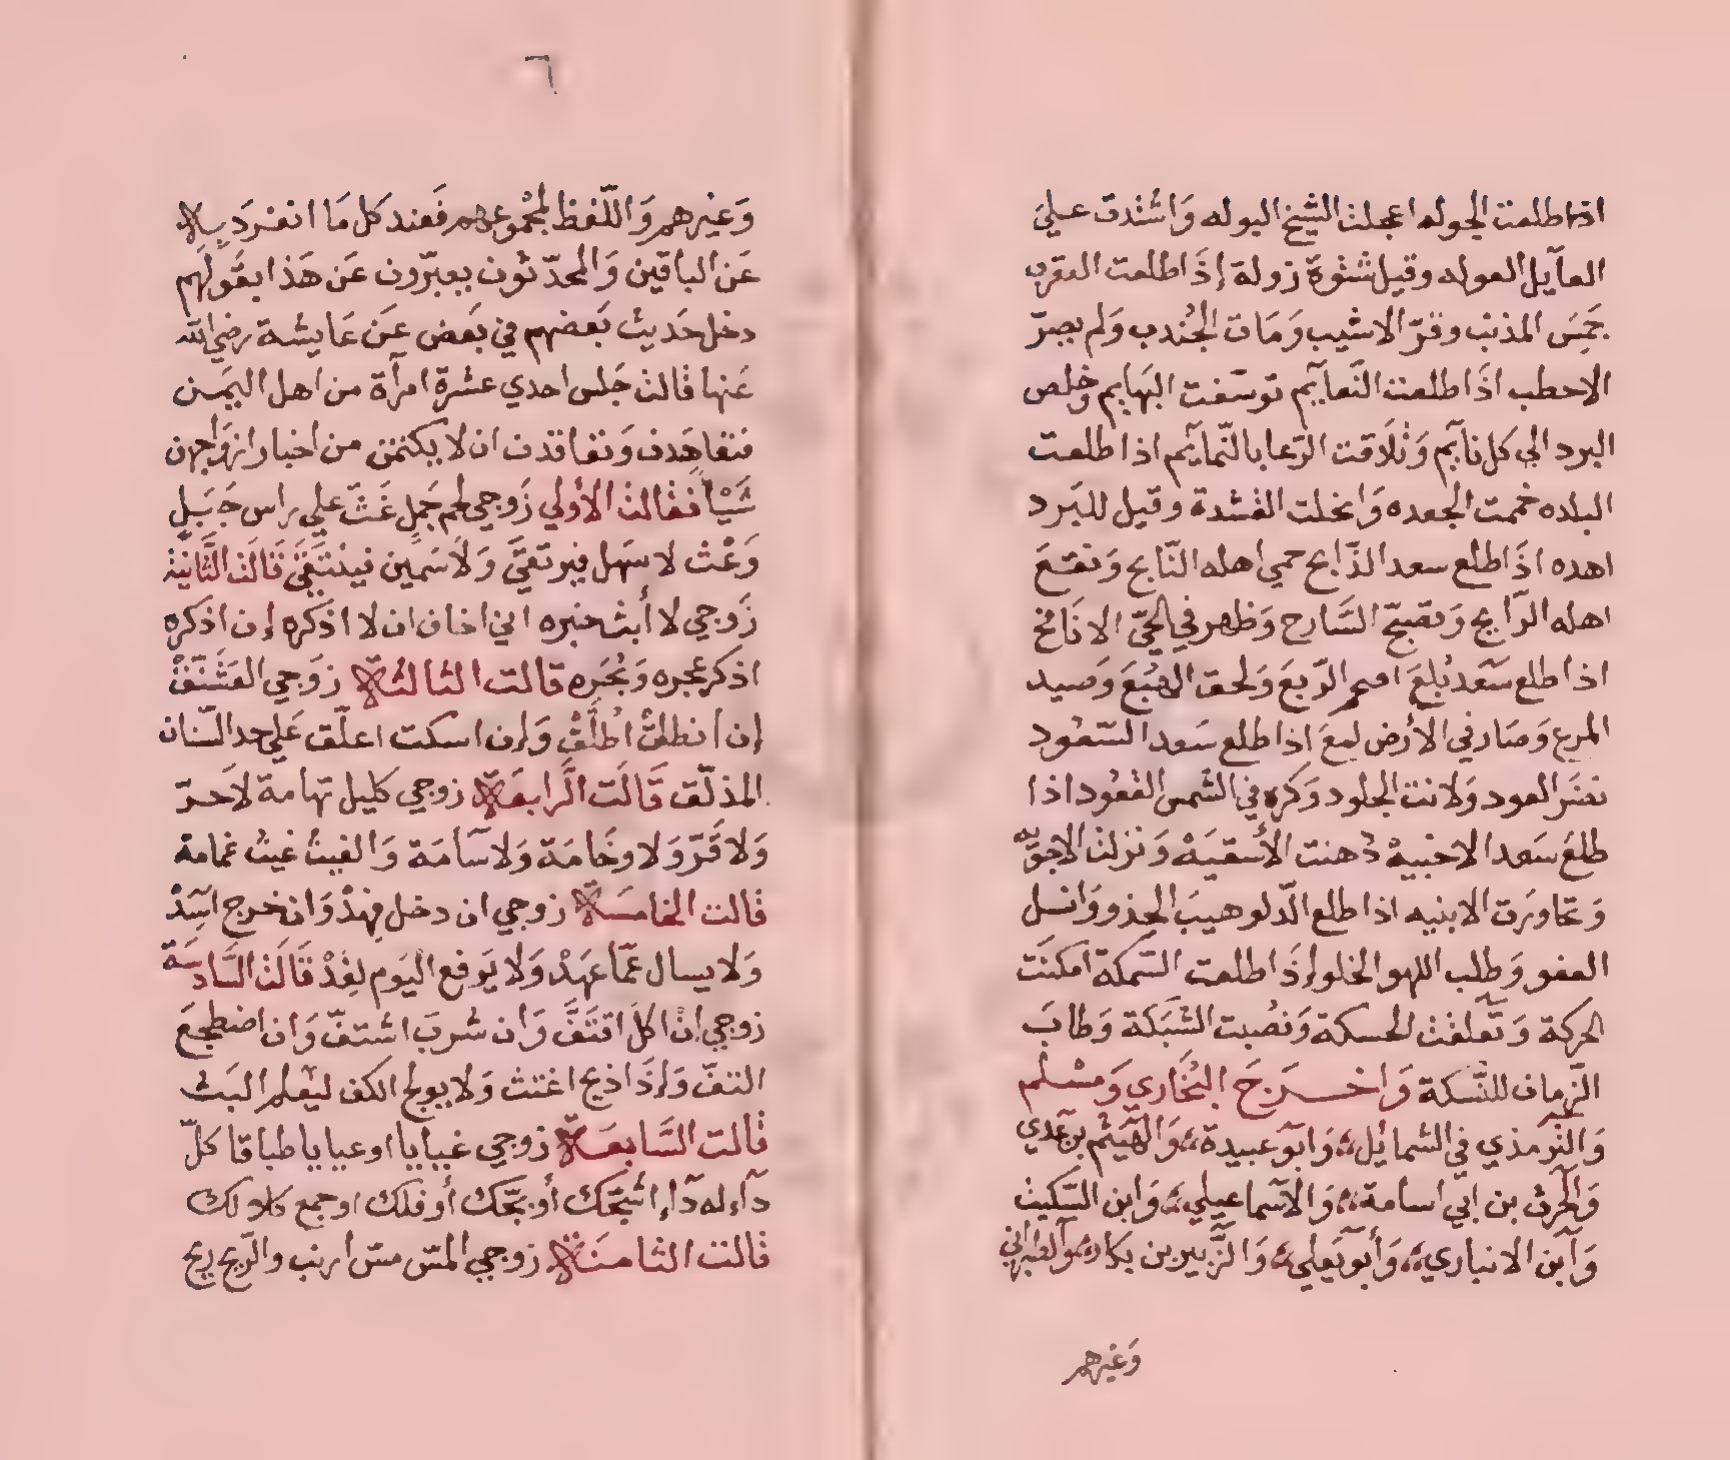 اذا طلعت الجوله اعجلت الشيخ البوله وَاشتدت علي
العآيل العوله وقيل شتوة زولة إذَا طلعت العقرب
جَمِسَ المذنب وقرّ الاشيب وَمَات الجُندب وَلم يصرّ
الاحطب اذَا طلعت النّعايم توسّفت البهايم وخلص
البرد الي كل نايم وَتلَاقت الرّعا بالنّمايم اذا طلعت
البلده حممت الجعده وَاخلت القشدة وقيل للبَرد
اهده اذَا طلع سعد الذّابح حمي اهله النّابح وَنقعَ
اهله الرّايح وَتصبّح السَّارح وَظهر في الحيّ الانَافح
اذا طلع سَعد بُلعَ اقتحم الرّبعَ وَلحق الهُبَعَ وَصيد
المرع وَصَار في الأرض لمعَ اذا طلع سَعد السّعُود
نضَر العود وَلانت الجلود وَكره في الشمس القعُود اذا
طلعَ سَعد الاخبيهْ دُهنت الأسقيَهْ وَنزلت الاحويه
وَتجاورَت الابنيه اذا طلع الدّلو هيبَ الجذو وَانسل
العفو وَطلب اللهو الخلو إذَا طلعت السّمكة امكنَت
الحركة وَتعلقت الحسكة وَنصُبت الشبَكة وَطابَ
الزّمان للنّسكة وَاخرَجَ البُخَاري وَمسْلم
وَالتّرمذي في الشمايل وَابو عبيدة وَالهَيثم بن عَدي
وَالحَرث بن ابي اسامة وَالاسماعيلي وَابن السّكيت
وَابن الانباري وَأبو يَعلي وَالزّبير بن بكار وَالطبراني
وَغيرهم
٦
وَغيرهم وَاللّفظ لمجموعهم فَعند كل مَا انفردَ به
عَن الباقين وَالمحدّثون يعبّرون عَن هَذا بقَولهم
دخل حَديث بَعضهم في بَعض عَن عَايشة رضي الله
عَنها قالت جَلس احدي عشرة امرآة من اهل اليمَن
فتعاهَدن وَتعاقدن ان لا يكتمن من اخبار ازوَاجهن
شَيْاً فقالت الأولي زَوجي لحم جَمل غَثّ علي راس جَبَلٍ
وَعْث لا سَهل فيرتقَيَّ وَلاَ سَمين فينتَقَيَ قَالَت الثَّانية
زَوجي لا أبث خبره اني اخاف ان لا اذكره إن اذكره
اذكر عجره وَبُجَره قالت الثالثة زوَجي العَشَنّقْ
إن انطلقْ اُطلَّقْ وَإن اسكت اعلّق عَلي حد السّنان
المذلّق قَالَت الرَّابعَة زوجي كليل تهامة لاَحرّ
وَلا قَرّ وَلا وخَامَة وَلا سآمَة وَالغيث غيث غمامة
قالت الخامسَة زوجي ان دخل فهِدْ وَان خرج اسِدْ
وَلا يسال عَمّا عهَدْ وَلا يَرفع اليَوم لغَدْ قَالَت السَّادسَة
زوجي إنْ اكلَ اقتفَّ وَان شربَ اشتفّ وَان اضطجعَ
التفّ وَإذَا ذبح اغتث وَلا يولج الكف ليعلم البَث
قالت السَّابعَة زوجي غيايا او عيايا طباقا كلّ
دآء له دآء شجّك أو بجّك أو فلك او جمع كلا لك
قالت الثامنَة زوجي المسّ مسّ ارنب والرّيح ريح